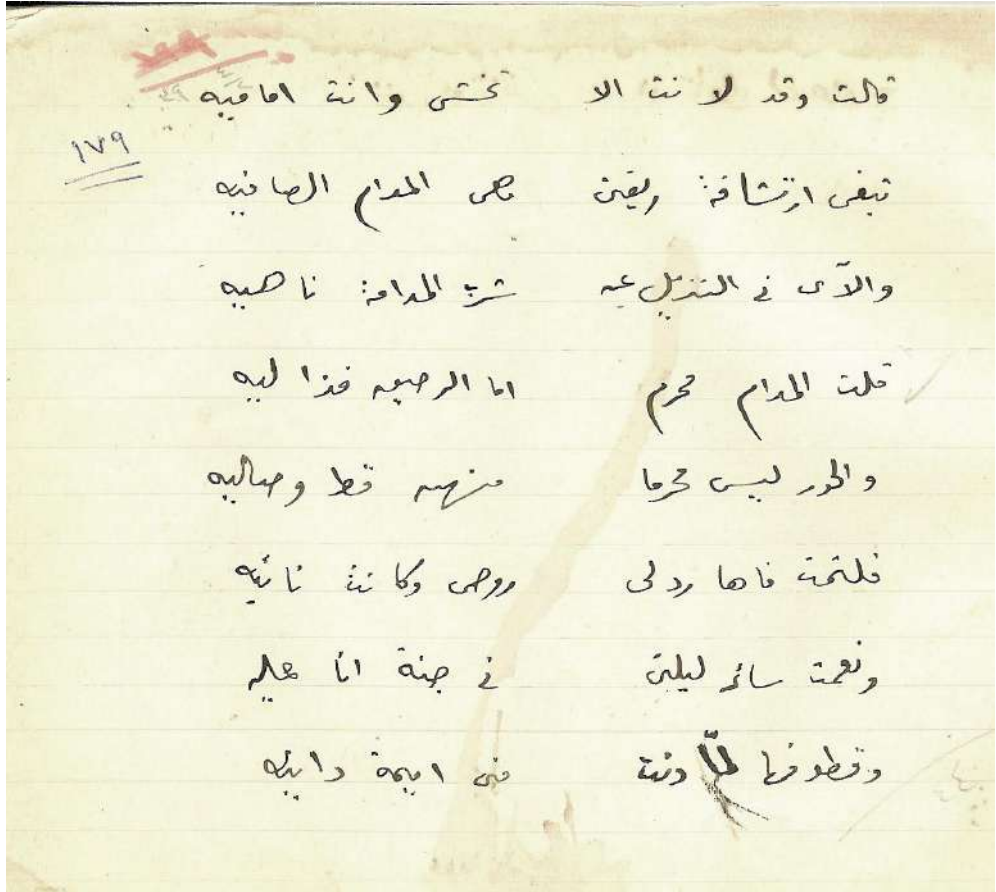 ١٧٩
قالت وقد لانت الا تخشى وانت امافيه
تبغى ارتشافة ريقتى وهى المدام الصافيه
والآى فى التنزيل عن شرب المدامة ناهيه
قلت المدام محرم اما الرحيق فذا ليه
والحور ليس محرما منهن قط وصاليه
فلثمت فاها رد لى روحى وكانت نائيه
ونعمت سائر ليلتى فى جنة انا عاليه
وقطوفها لمّا دنت منى دانيه